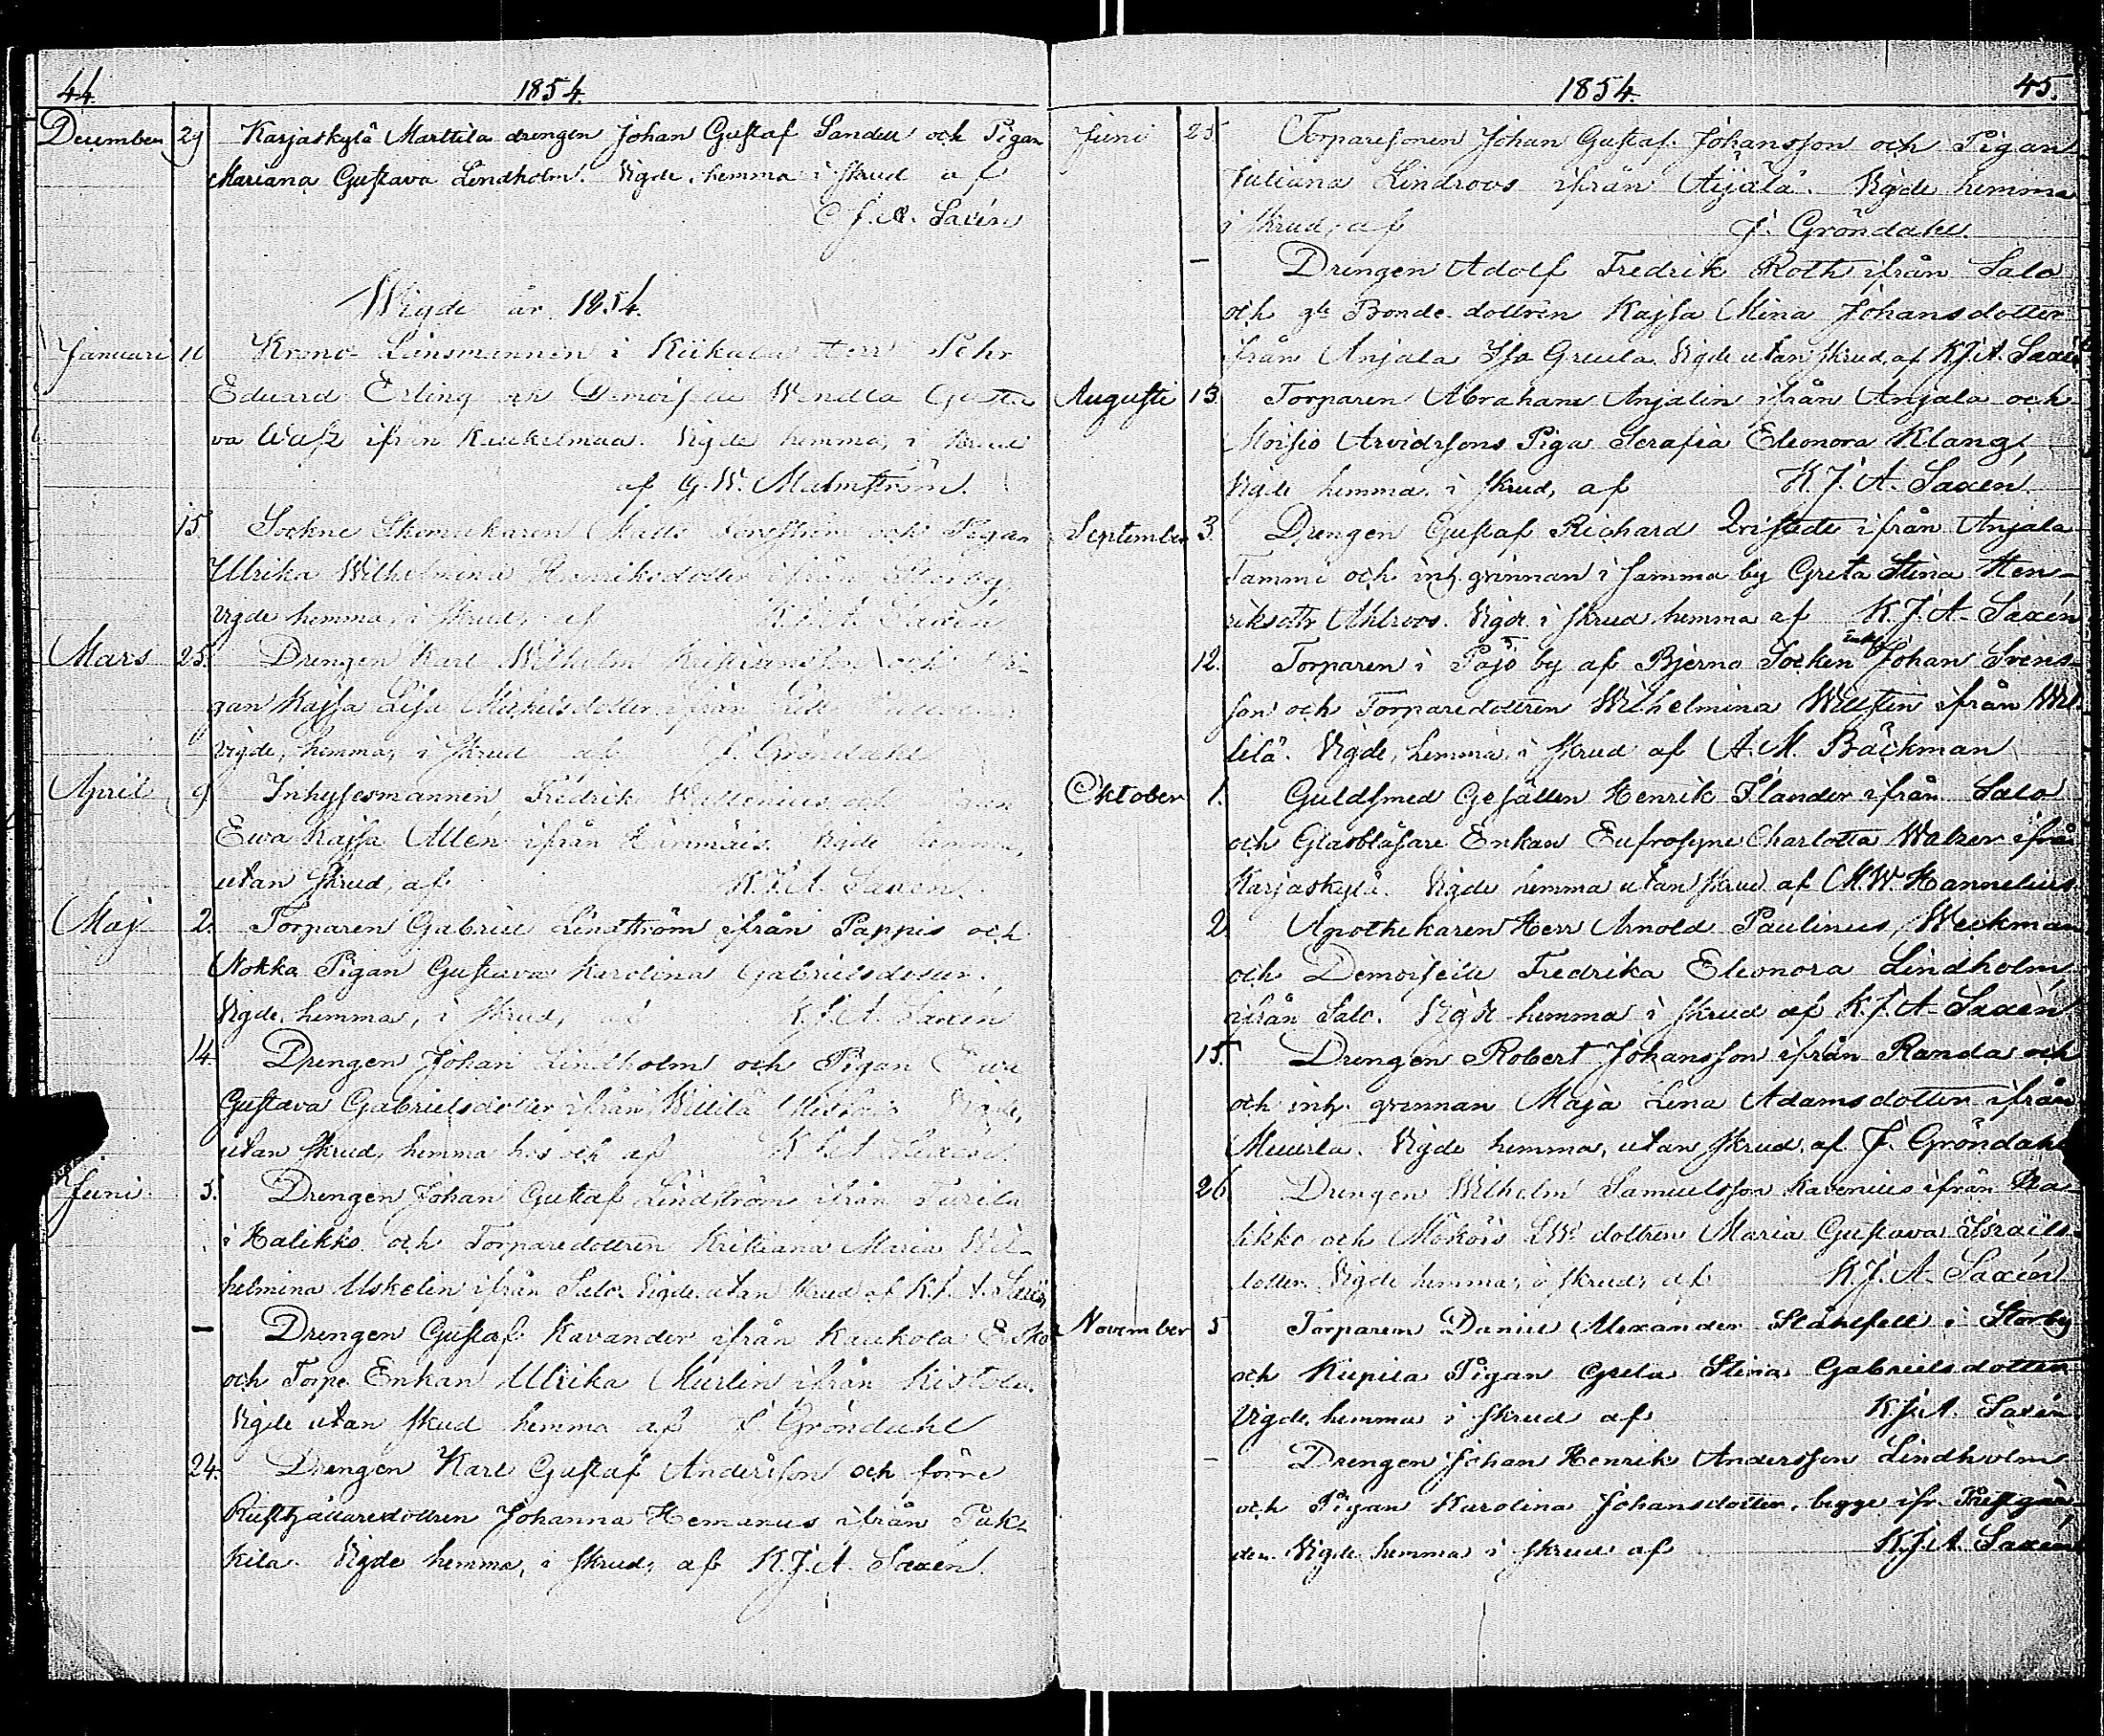 44. 1854.
December 29 Karjaskylä Marttila drengen Johan Gustaf Sandell och Pigan
Mariana Gustava Lindholm. Vigde, hemma i skrud af
C. J. A. Saxén
Wigde år 1854.
Januari Krono-Länsmannen i Kiikala Herr Pehr
Eduard Erling och Demoiselle Wendla Gusta-
va ifrån Vigde hemma, i skrud
af G. W. Malmström.
15. Sockne Skomakaren och Pigan
Ulrika Wilhelmina Henriksdotter ifrån
vigde hemma, i skrud, af K. J. A. Saxén
Mars 25. Drengen Karl Wilhelm Kristiansson och Pi-
gan Kajsa Lisa Mickelsdotter ifrån
vigde, hemma, i skrud af J. Gröndahl
April 9 Inhysesmannen Fredrik och
Ewa Kajsa Allén ifrån Vigde hemma,
utan skrud, af K. J. A. Saxén.
Maj 2. Torparen Gabriel Lindström ifrån Pappis och
Nokka Pigan Gustava Karolina Gabrielsdotter.
Vigde, hemma, i skrud, af K. J. A. Saxén
14. Drengen Johan Lindholm och Pigan Ewa
Gustava Gabrielsdotter ifrån Vigde,
utan skrud, hemma hos och af K. J. A. Saxén.
Juni 5. Drengen Johan Gustaf Lindström ifrån
i Halikko och Torparedottren Kristiana Maria Wil-
helmina Uskelin ifrån Salo. Vigde utan skrud af K. J. A. Saxén
— Drengen Gustaf Kavander ifrån Kaukola
och Torp. Enkan Ulrika Murlin ifrån
Vigde utan skrud hemma af J. Gröndahl
24. Drengen Karl Gustaf Andersson och förre
Rusthållaredottren Johanna Hemanus ifrån Puk-
kila. Vigde hemma, i skrud, af K. J. A. Saxén.
1854. 45.
Juni 25. Torparesonen Johan Gustaf Johansson och Pigan
Juliana Lindroos ifrån Äijälä. Vigde hemma
i skrud, af J. Gröndahl.
— Drengen Adolf Fredrik Roth ifrån Salo
och Bonde dottren Kajsa Mina Johansdotter
ifrån Anjala Vigde utan skrud, af K. J. A. Saxén
Augusti 13 Torparen Abraham Anjalin ifrån Anjala och
Moisio Arvidssons Piga Serafia Eleonora Klang,
Vigde hemma, i skrud, af K. J. A. Saxén.
September 3. Drengen Gustaf Richard Qvistedt ifrån Anjala
Tammi och inh. qvinnan i samma by Greta Stina Hen-
riksdtr Ahlroos. Vigde i skrud hemma af K. J. A. Saxén
12. Torparen i Pajo by af Bjerno Socken Enkl. Johan Svens-
son och Torparedottren Wilhelmina Willstin ifrån Wil-
lilä. Vigde, hemma, i skrud af A. M. Bäckman
Oktober 1. Guldsmed Gesällen Henrik Flander ifrån Salo
och Glasblåsare Enkan Eufrosyne Charlotta Walzer ifrån
Karjaskylä. Vigde hemma utan skrud af M. W. Hannelius
2. Apothekaren Herr Arnold Paulinus Weckman
och Demoiselle Fredrika Eleonora Lindholm
ifrån Salo. Vigde hemma i skrud af K. J. A. Saxén
15. Drengen Robert Johansson ifrån Randa och
och inh. qvinnan Maja Lena Adamsdotter ifrån
Muurla. Vigde hemma, utan skrud, af J. Gröndahl
26 Drengen Wilhelm Samuelsson Kavenius ifrån Ha-
likko och dottren Maria Gustava Israels-
dotter. Vigde hemma, i skrud, af K. J. A. Saxén
November 5 Torparen Daniel Alexander Stålfelt i Storby
och Pigan Greta Stina Gabrielsdotter
Vigde, hemma i skrud af K. J. A. Saxén
— Drengen Johan Henrik Andersson Lindholm
och Pigan Karolina Johansdotter, begge ifr. Prestgår-
den. Vigde hemma i skrud af K. J. A. Saxén